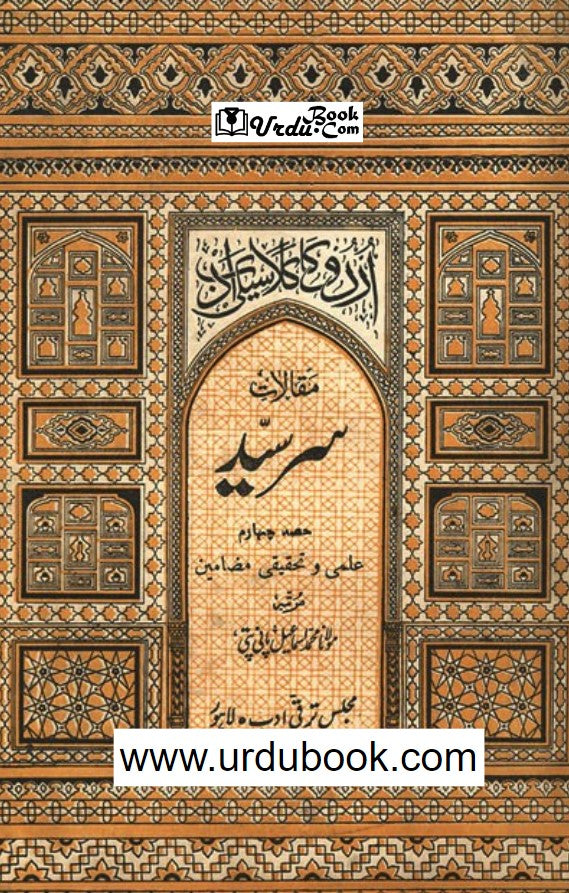 Urdu Book.Com
اُردو کا کلاسیکی ادب
مقالات
سرسیّد
حصہ چہارم
علمی و تحقیقی مضامین
مرتبہ
مولانا محمد اسماعیل پانی پتی
مجلس ترقی ادب ٥ لاہور
www.urdubook.com